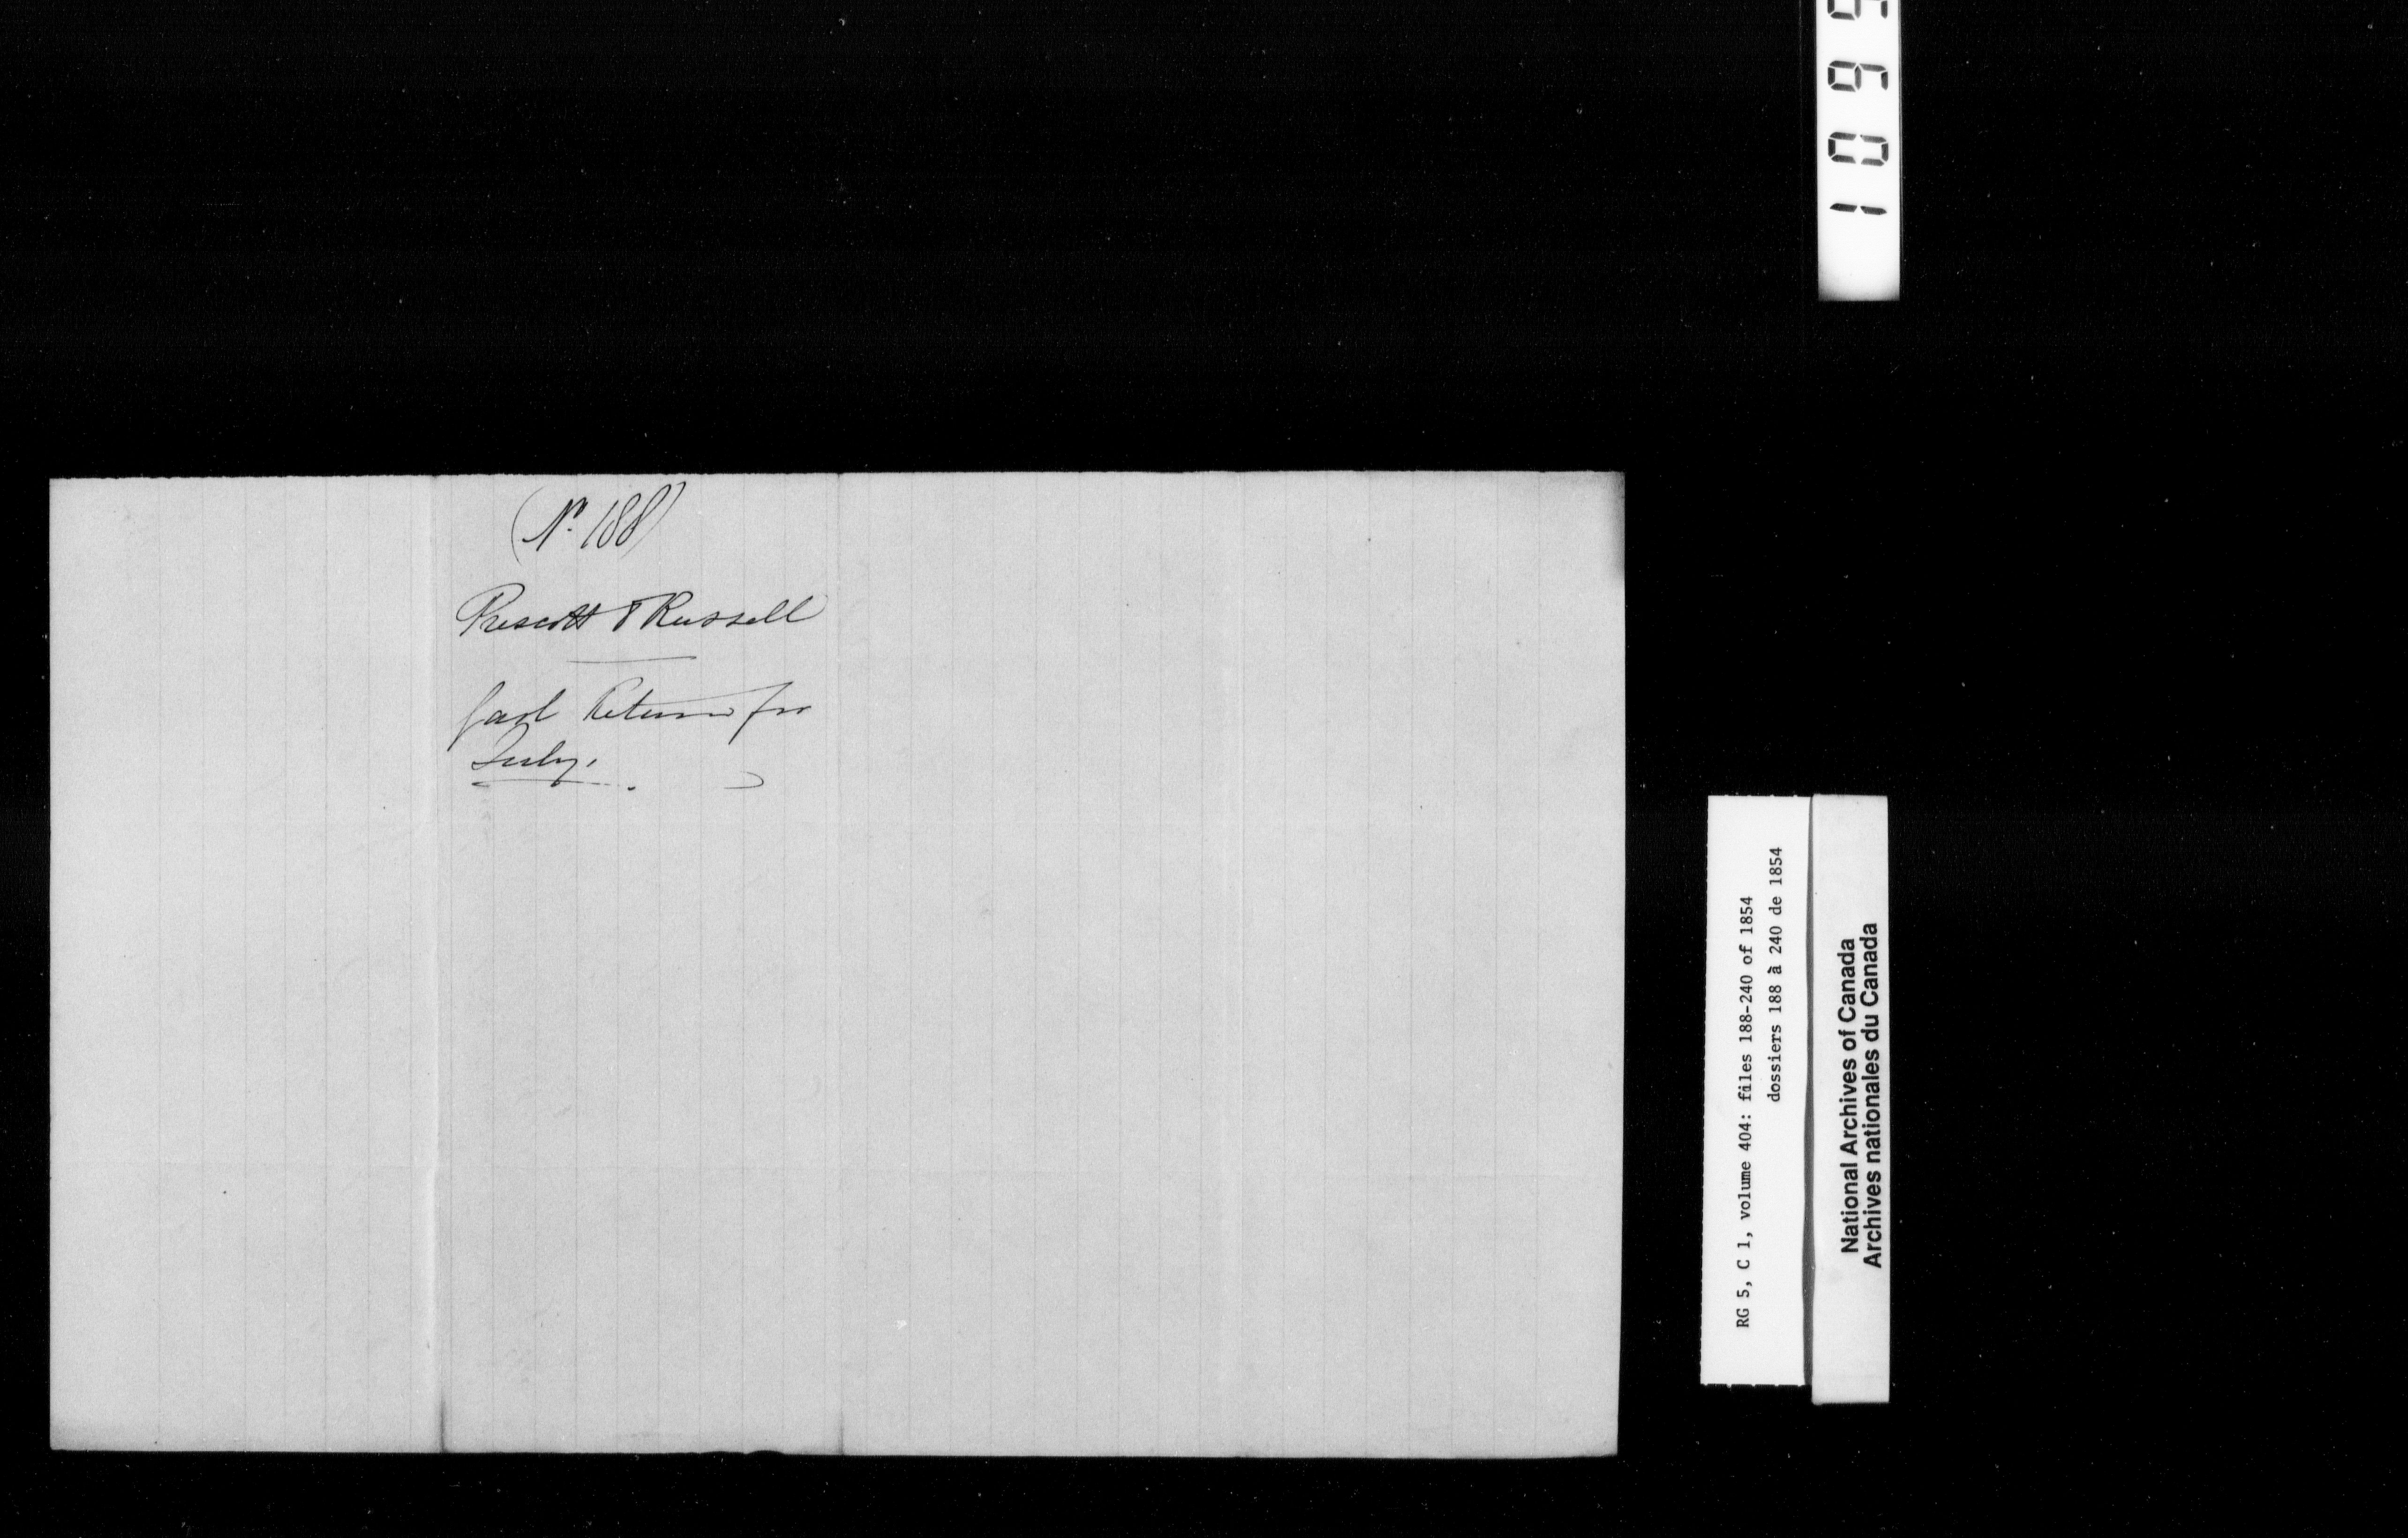 (No. 188)
Prescott & Russell
Gaol Return for
July.
RG 5, C 1, volume 404: files 188-240 of 1854
dossiers 188 à 240 de 1854
National Archives of Canada
Archives nationales du Canada